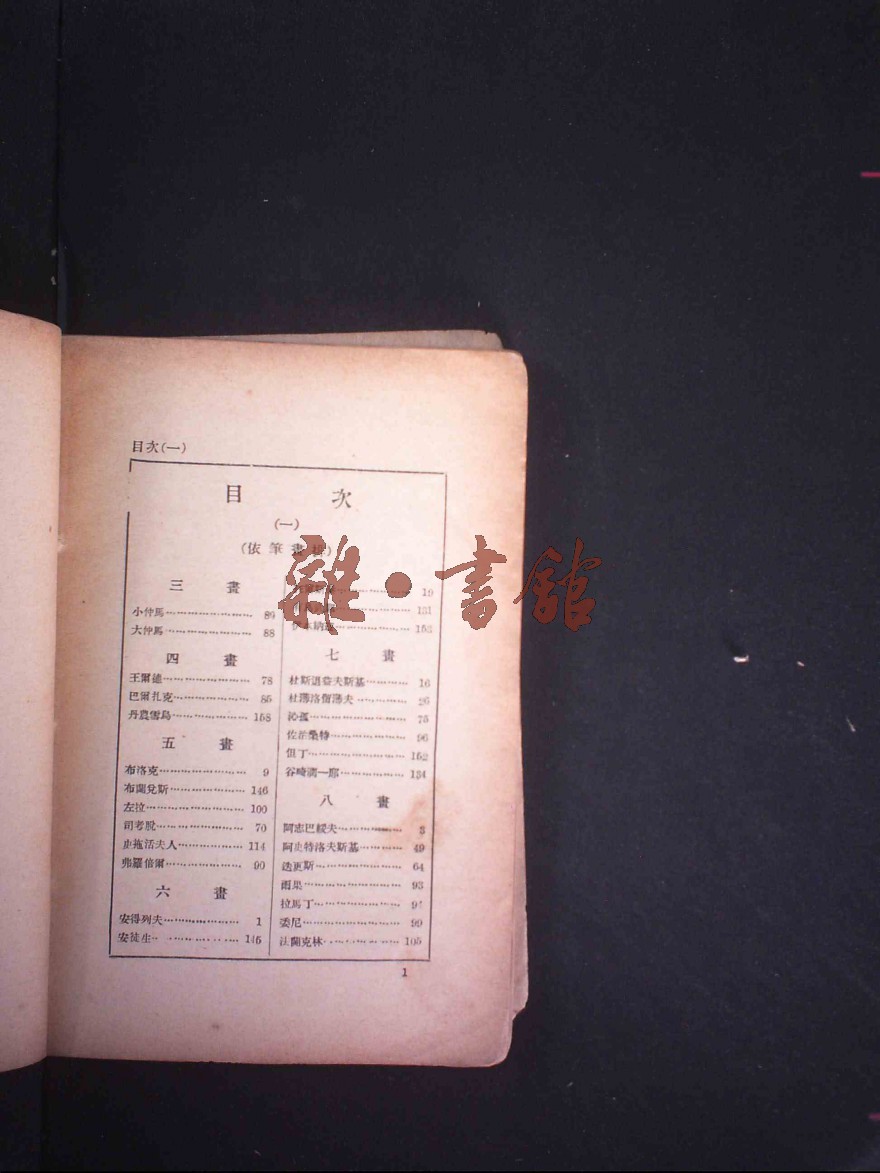 目次(一)
目 次
(一)
(依筆畫排)
三 畫
小仲馬 89
大仲馬 88
四 畫
王爾德 78
巴爾扎克 85
丹農雪烏 158
五 畫
布洛克 9
布蘭兌斯 146
左拉 100
司考脫 70
史拖活夫人 114
弗羅倍爾 90
六 畫
安得列夫 1
安徒生 145
19
131
153
七 畫
杜斯退益夫斯基 16
杜薄洛留薄夫 26
沁孤 75
佐治桑特 96
但丁 152
谷崎潤一郎 134
八 畫
阿志巴綏夫 3
阿史特洛夫斯基 49
迭更斯 64
雨果 93
拉馬丁
委尼 99
法蘭克林 105
1
雜·書館